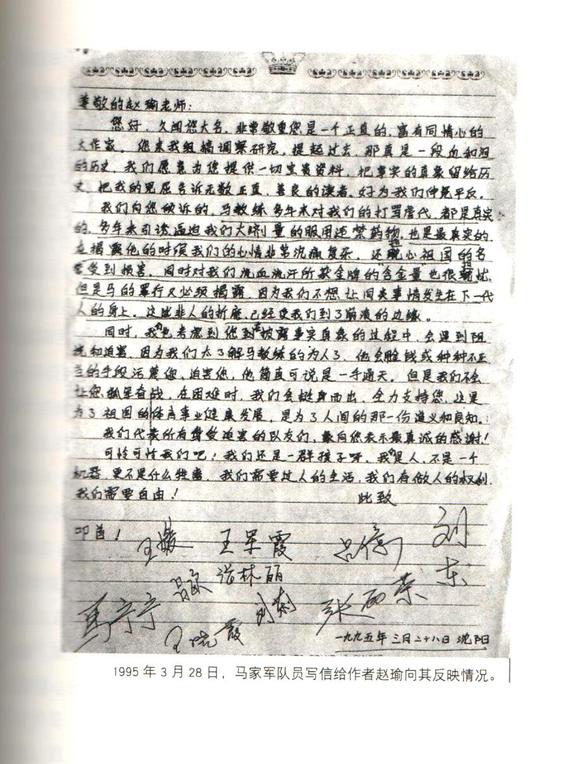 尊敬的赵瑜老师：
您好，久闻您大名，非常敬重您是一个正直的，富有同情心的
大作家，您来我组搞调察研究，提起过去，那真是一段血和泪
的历史，我们愿意为您提供一切宝贵资料，把事实的真象留给历
史，把我的冤屈告诉无数正直、善良的读者，好为我们伸冤平反。
我们向您倾诉的，马教练多年来对我们的打骂虐代，都是真实
的，多年来引诱逼迫我们大剂量的服用违禁药物，也是最真实的
在揭露他的时候我们的心情非常沉痛复杂，还担心祖国的名
誉受到损害，同时对我们流血流汗所获金牌的含金量也很担忧
但是马的罪行又必须揭露，因为我们不想让同类事情发生在下一代
人的身上，这非人的折磨，已经使我们到了崩溃的边缘。
同时，我们也考虑到您到披露事实真象的过程中，会遇到阻
挠和迫害，因为我们太了解马教练的为人了，他会用钱或种种不正
当的手段污蔑您，迫害您，他简直可说是一手通天，但是我们不会
让您孤军奋战，在困难时，我们会挺身而出，全力支持您，这是
为了祖国的体育事业健康发展，是为了人间的那一份道义和良知。
我们代表所有曾受迫害的队友们，最向您表示最真诚的感谢！
可怜可怜我们吧！我们还是一群孩子呀，我们是人，不是一个
机器更不是什么牲畜，我们需要过人的生活，我们有做人的权利
我们需要自由！ 此致
叩首！
王媛 王军霞 吕亿 刘东
吕欧 张林丽
马宁宁 刘莉 张丽荣
王晓霞
一九九五年三月二十八日 沈阳
1995年3月28日，马家军队员写信给作者赵瑜向其反映情况。